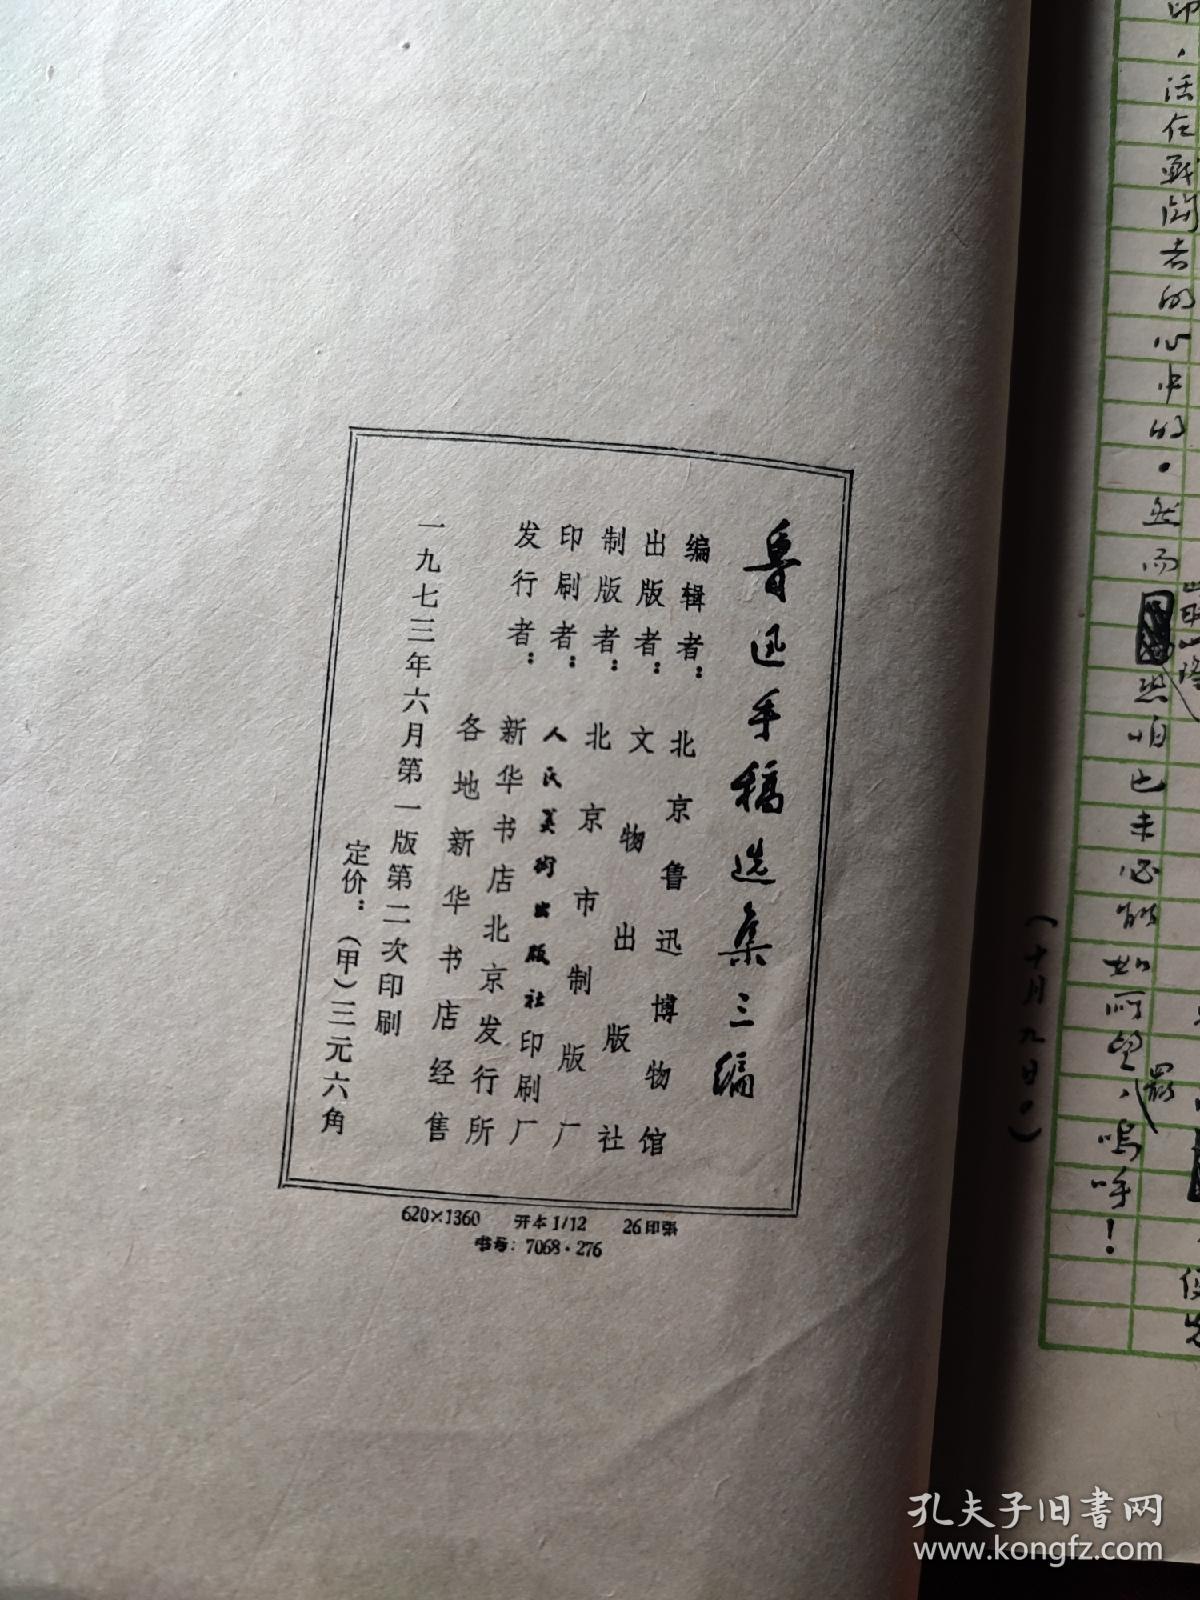 鲁迅手稿选集三编
编辑者：北京鲁迅博物馆
出版者：文物出版社
制版者：北京市制版厂
印刷者：人民美術出版社印刷厂
发行者：新华书店北京发行所
各地新华书店经售
一九七三年六月第一版第二次印刷
定价：（甲）三元六角
620×1360 开本1/12 26印张
书号：7068·276
印，活在戰鬭者的心中的。然而
然怕也未必能如所望，嗚呼！
（十月九日。）
孔夫子旧书网
www.kongfz.com